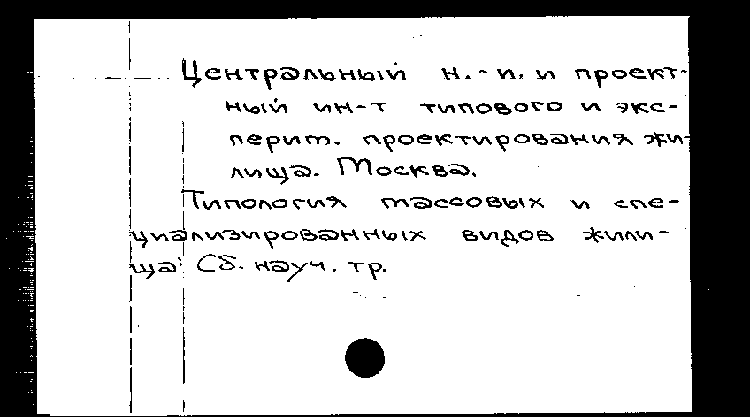 Центральный н.-и. и проект-
ный ин-т типового и экс-
перит. проектирования жи-
лища. Москва.
Типология массовых и спе-
циализированных видов жили-
ща: Сб. науч. тр.